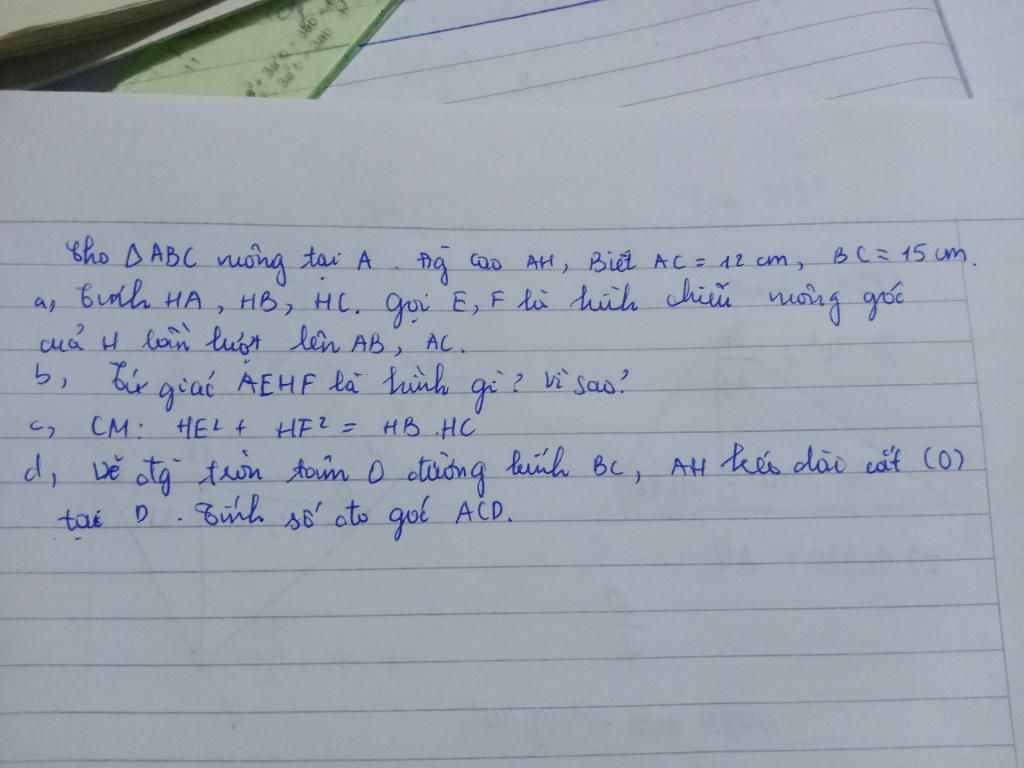 Cho Δ ABC vuông tại A. Đg cao AH, Biết AC = 12 cm, BC = 15 cm.
a, Tính HA, HB, HC. Gọi E, F là hình chiếu vuông góc
của H lần lượt lên AB, AC.
b, Tứ giác AEHF là hình gì? Vì sao?
c, CM: HE² + HF² = HB.HC
d, Vẽ đg tròn tâm O đường kính BC, AH kéo dài cắt (O)
tại D. Tính số đo góc ACD.